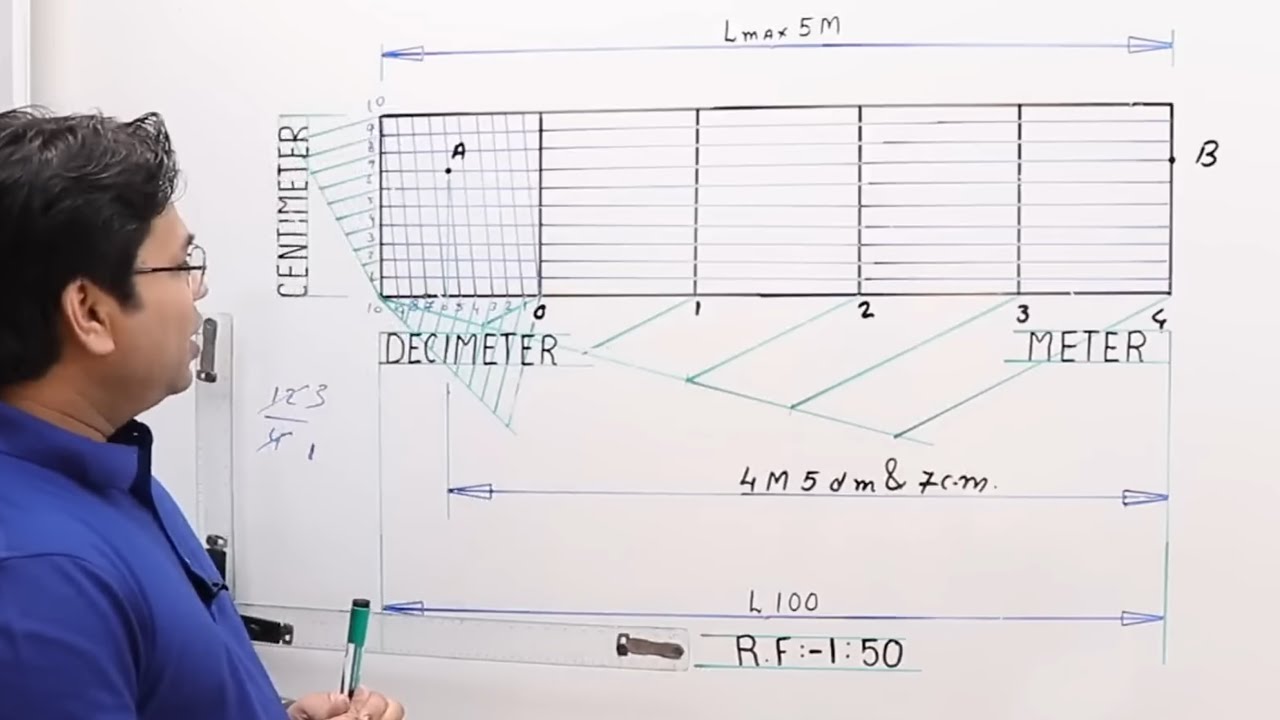 Lmax 5M
10
9
8
7
6
5
4
3
2
1
CENTIMETER
A
B
10 9 8 7 6 5 4 3 2 1 0 1 2 3 4
DECIMETER
METER
12 3
4 1
4M 5dm & 7c.m.
L 100
R.F:-1:50